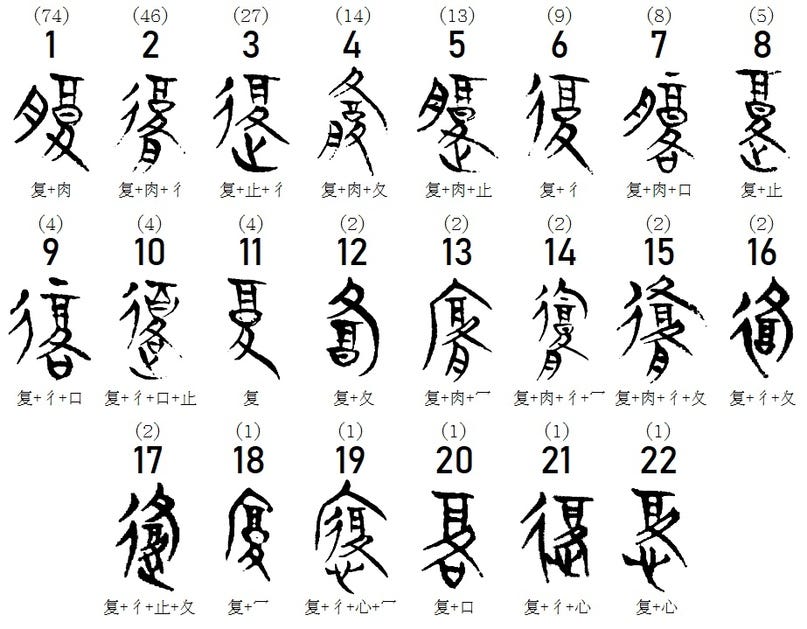 (74) (46) (27) (14) (13) (9) (8) (5)
1 2 3 4 5 6 7 8
复+肉 复+肉+彳 复+止+彳 复+肉+夂 复+肉+止 复+彳 复+肉+口 复+止
(4) (4) (4) (2) (2) (2) (2) (2)
9 10 11 12 13 14 15 16
复+彳+口 复+彳+口+止 复 复+夂 复+肉+冖 复+肉+彳+冖 复+肉+彳+夂 复+彳+夂
(2) (1) (1) (1) (1) (1)
17 18 19 20 21 22
复+彳+止+夂 复+冖 复+彳+心+冖 复+口 复+彳+心 复+心